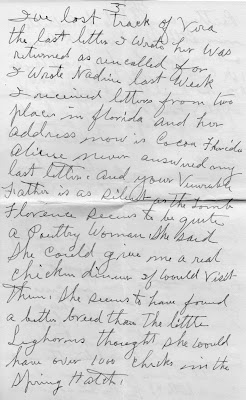 3
I've lost track of Vira
the last letter I wrote her was
returned as uncalled for
I wrote Nadine last week
I received letters from two
places in florida and her
address now is Cocoa Florida
Aliene never answred my
last letter. and your Venerable
Father is as silent as the Tomb
Florence seems to be quite
a Poultry Woman. She said
She could give me a real
chicken dinner if I would visit
Them. She seems to have found
a better breed than the little
Leghorns thought she would
have over 1000 chicks in the
Spring Hatch.